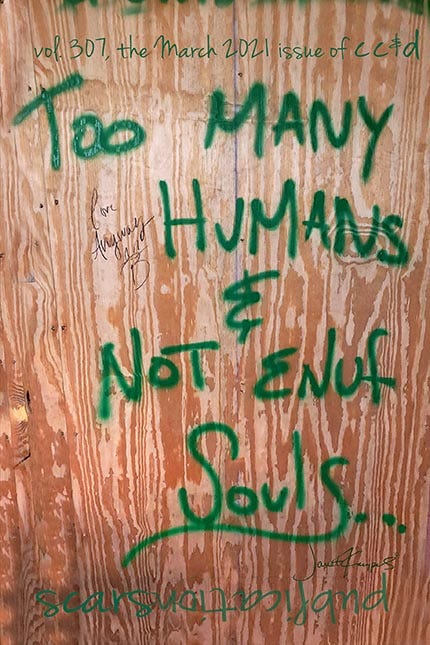 vol. 307, the March 2021 issue of cc&d
Too MANY
Love
Anyway
HUMANS
&
NOT ENUf
Souls...
Janet Kuypers
scars publications